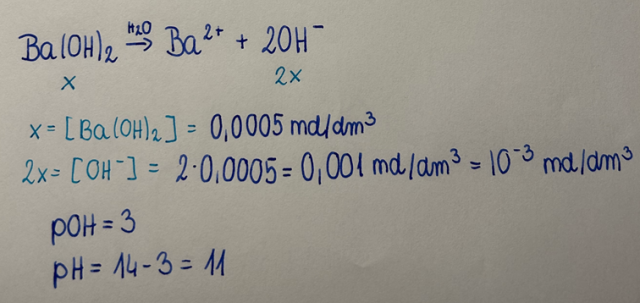 Ba(OH)₂ →H₂O Ba²⁺ + 2OH⁻
x 2x
x = [Ba(OH)₂] = 0,0005 mol/dm³
2x = [OH⁻] = 2·0,0005 = 0,001 mol/dm³ = 10⁻³ mol/dm³
pOH = 3
pH = 14 - 3 = 11